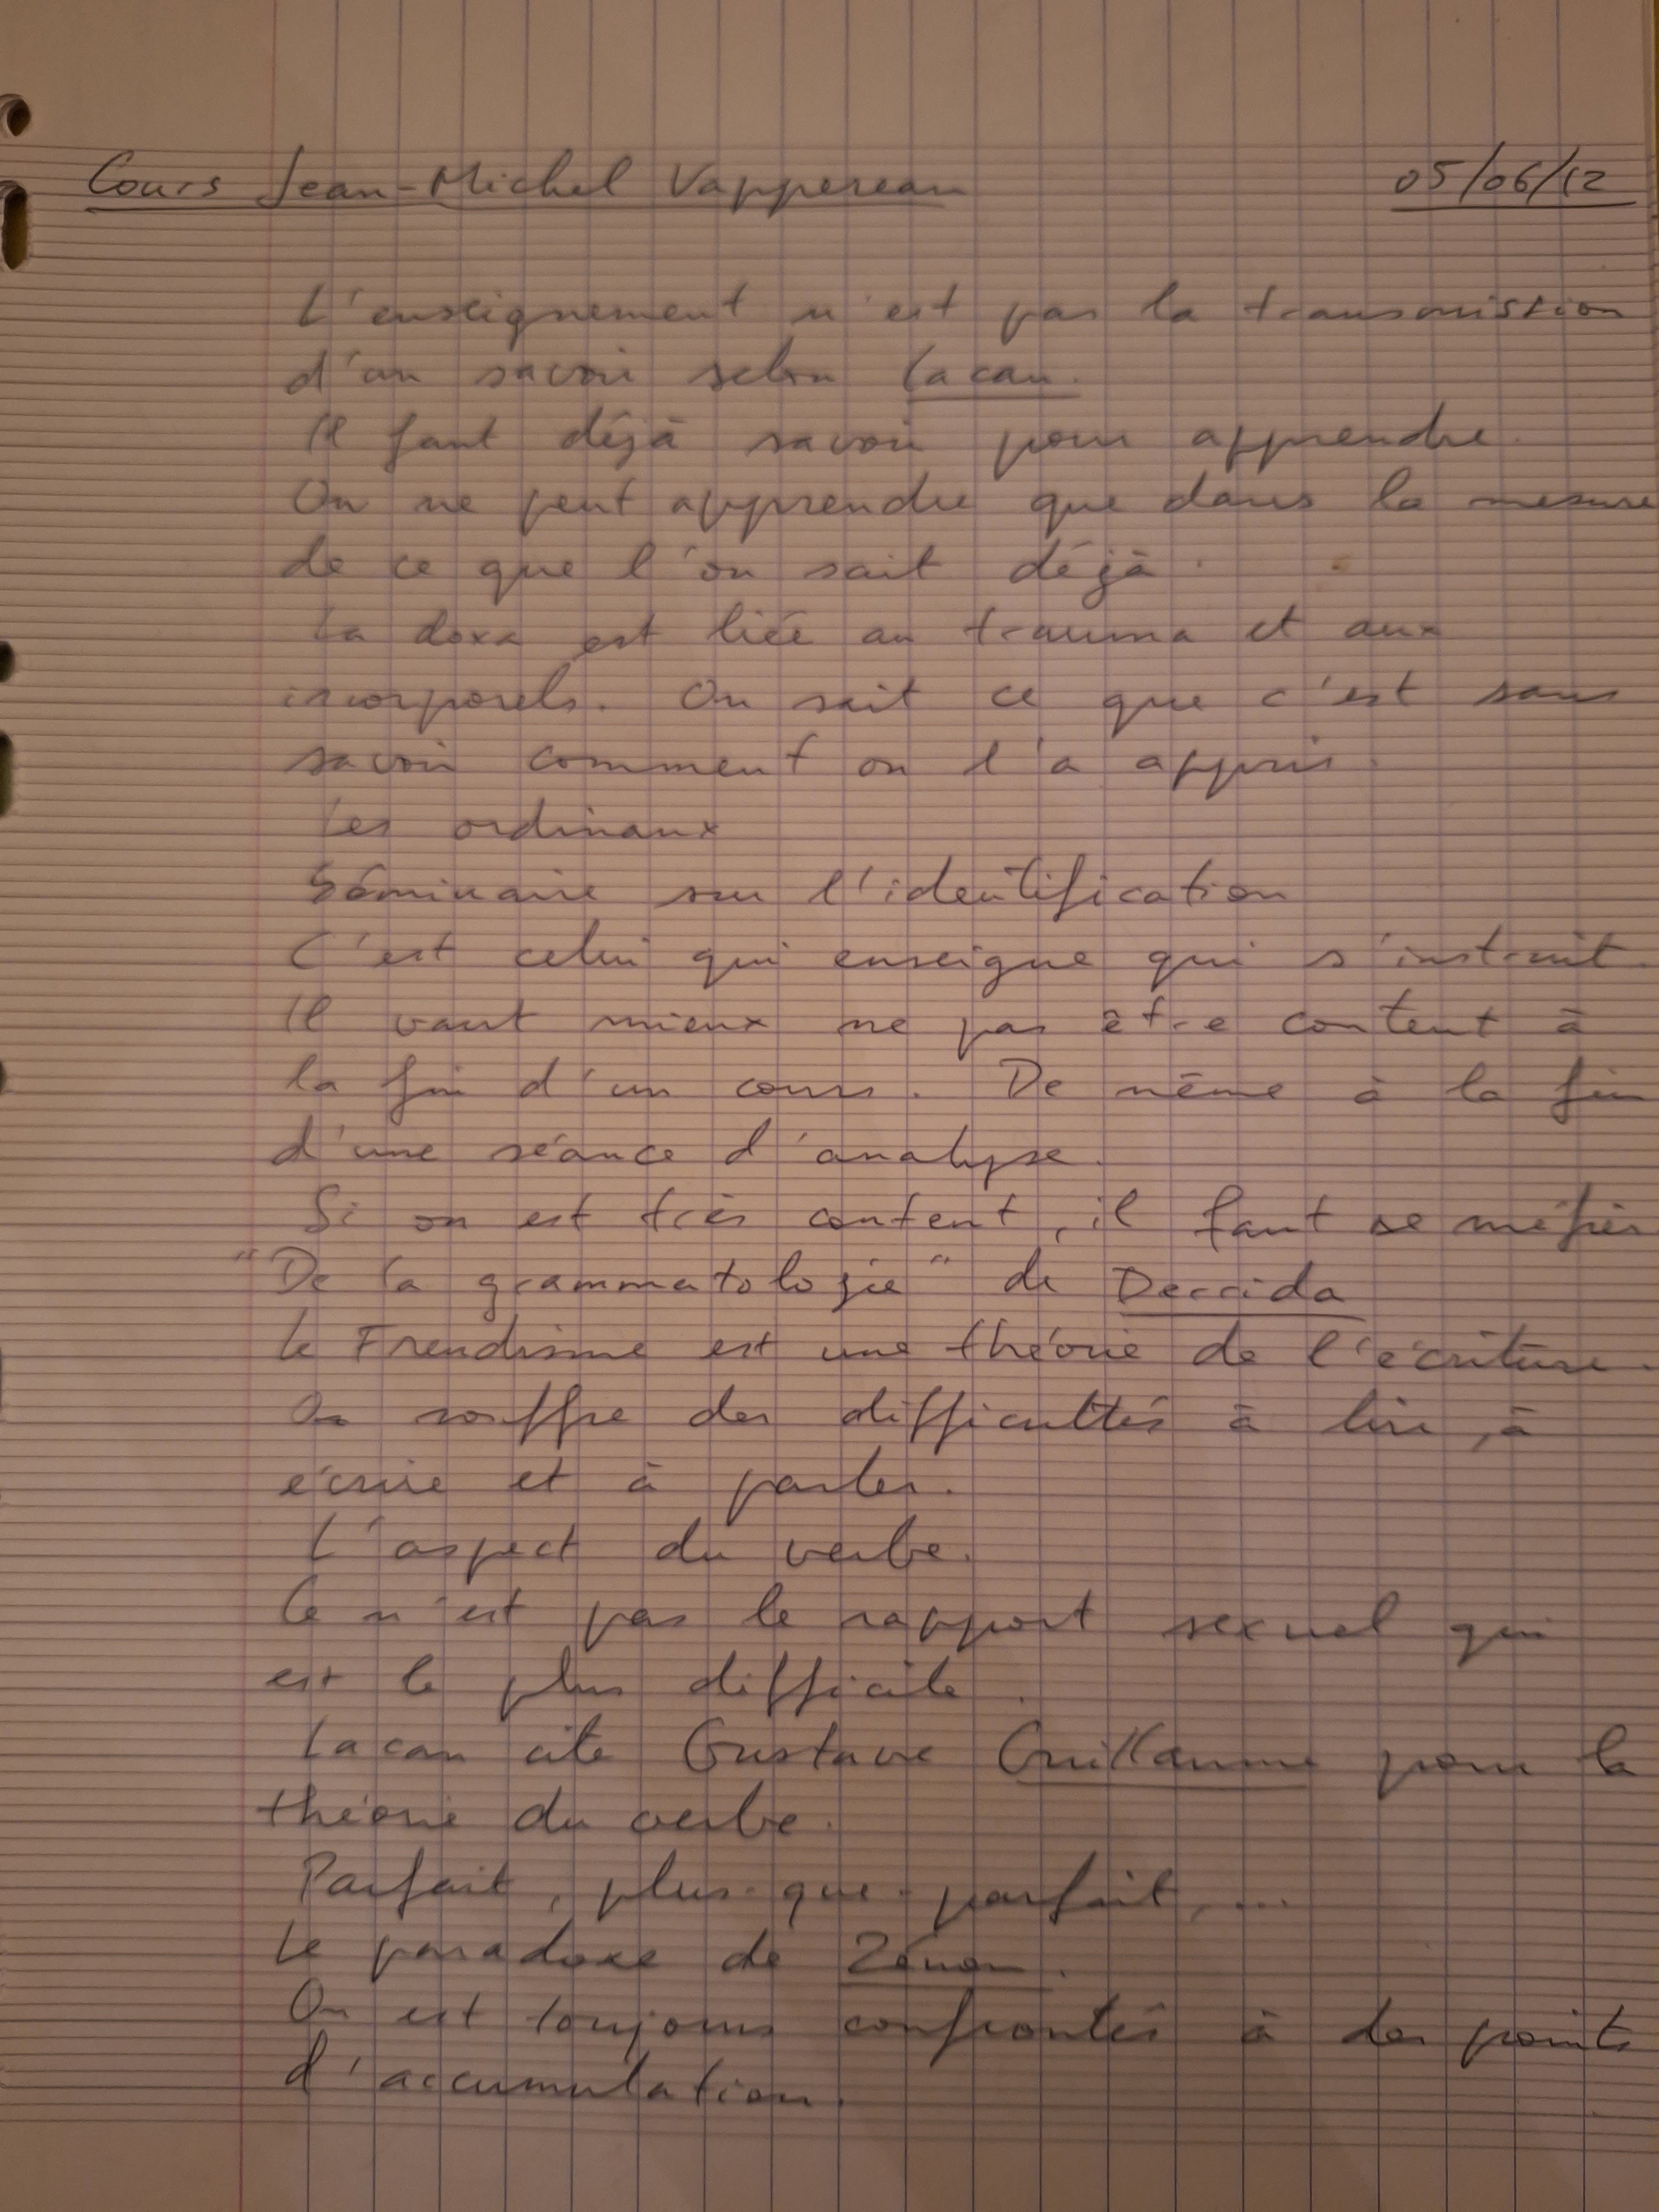 Cours Jean-Michel Vappereau 05/06/12
L'enseignement n'est pas la transmission
d'un savoir selon Lacan.
Il faut déjà savoir pour apprendre.
On ne peut apprendre que dans la mesure
de ce que l'on sait déjà.
La doxa est liée au trauma et aux
incorporels. On sait ce que c'est sans
savoir comment on l'a appris.
Les ordinaux
Séminaire sur l'identification
C'est celui qui enseigne qui s'instruit.
Il vaut mieux ne pas être content à
la fin d'un cours. De même à la fin
d'une séance d'analyse.
Si on est très content, il faut se méfier
"De la grammatologie" de Derrida
Le Freudisme est une théorie de l'écriture.
On souffre des difficultés à lire, à
écrire et à parler.
L'aspect du verbe.
Ce n'est pas le rapport sexuel qui
est le plus difficile.
Lacan cite Gustave Guillaume pour la
théorie du verbe.
Parfait, plus-que-parfait, ...
Le paradoxe de Zénon.
On est toujours confrontés à des points
d'accumulation.